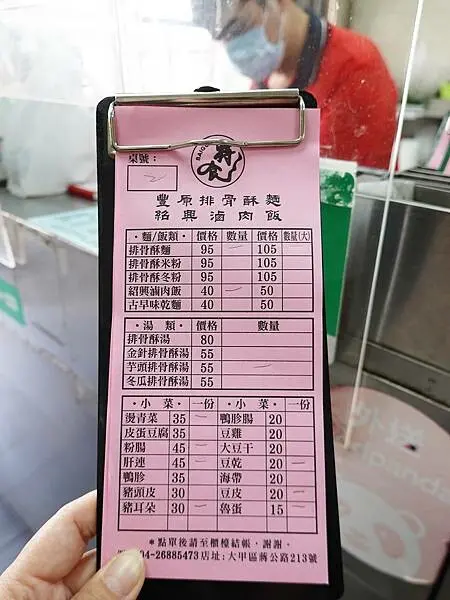 桌號：
豐原排骨酥麵
紹興滷肉飯
·麵/飯類· 價格 數量 價格 數量(大)
排骨酥麵 95 一 105
排骨酥米粉 95 105
排骨酥冬粉 95 105
紹興滷肉飯 40 一 50
古早味乾麵 40 50
·湯類· 價格 數量
排骨酥湯 80
金針排骨酥湯 55
芋頭排骨酥湯 55 一
冬瓜排骨酥湯 55
·小菜· 一份 ·小菜· 一份
燙青菜 35 一 鴨胗腸 20
皮蛋豆腐 35 豆雞 20
粉腸 45 一 大豆干 20
肝連 45 一 豆乾 20 一
鴨胗 35 海帶 20
豬頭皮 30 豆皮 20 一
豬耳朵 30 一 魯蛋 15 一
*點單後請至櫃檯結帳，謝謝。
04-26885473店址:大甲區蔣公路213號